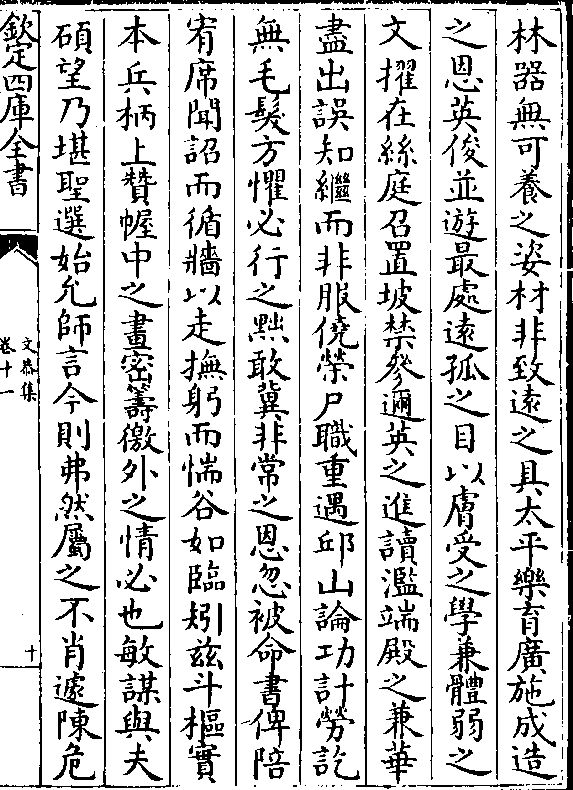 林器無可養之姿材非致遠之具太平樂育廣施成造
之恩英俊並遊最處遠孤之目以膚受之學兼體弱之
文擢在絲庭召置坡禁參邇英之進讀濫端殿之兼華
盡出誤知繼而非服僥榮尸職重遇邱山論功計勞訖
無毛髮方懼必行之黜敢冀非常之恩忽被命書俾陪
宥席聞詔而循牆以走撫躬而惴谷如臨矧兹斗樞實
本兵柄上贊幄中之畫密籌徼外之情必也敏謀與夫
碩望乃堪聖選始允師言今則弗然屬之不肖遽陳危
欽定四庫全書
文恭集
卷十一
十